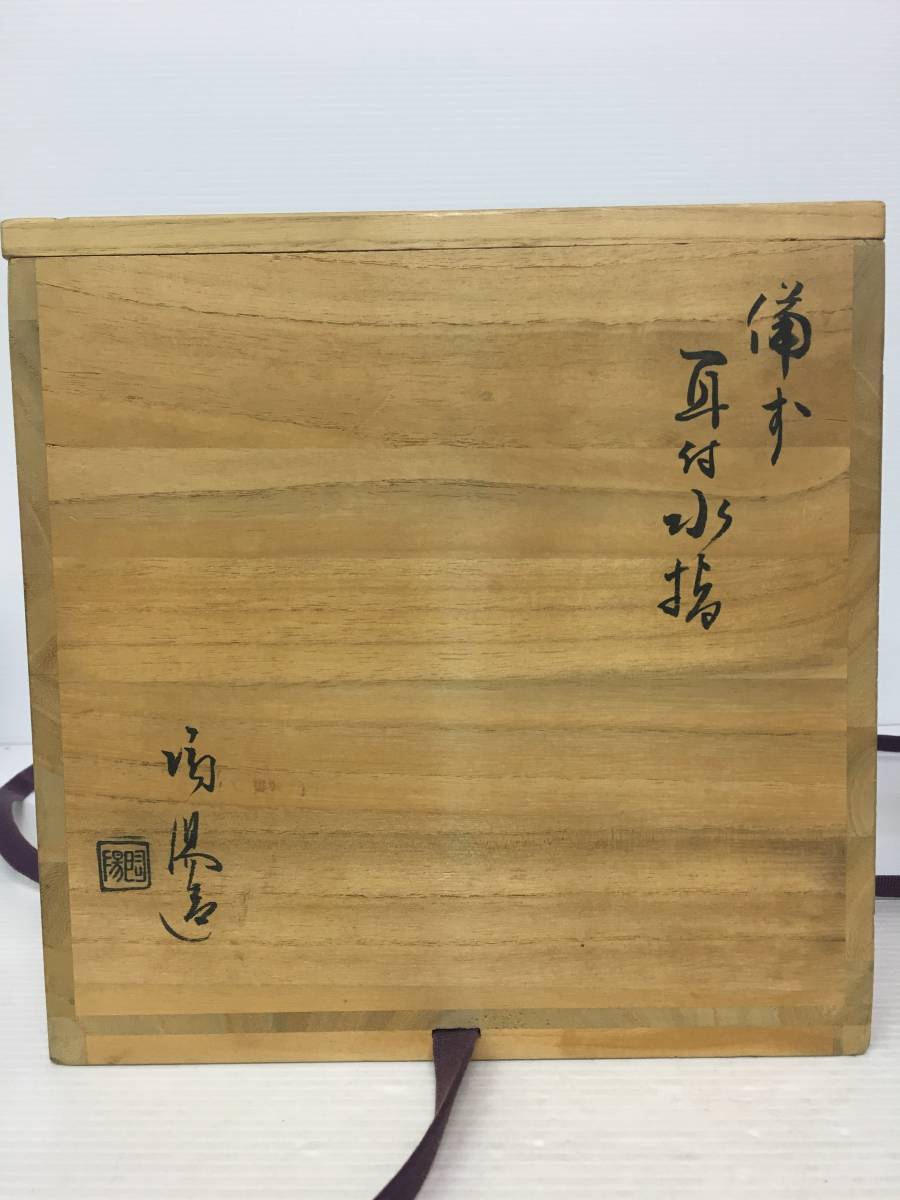 備前
耳付水指
陶陽造
陶陽